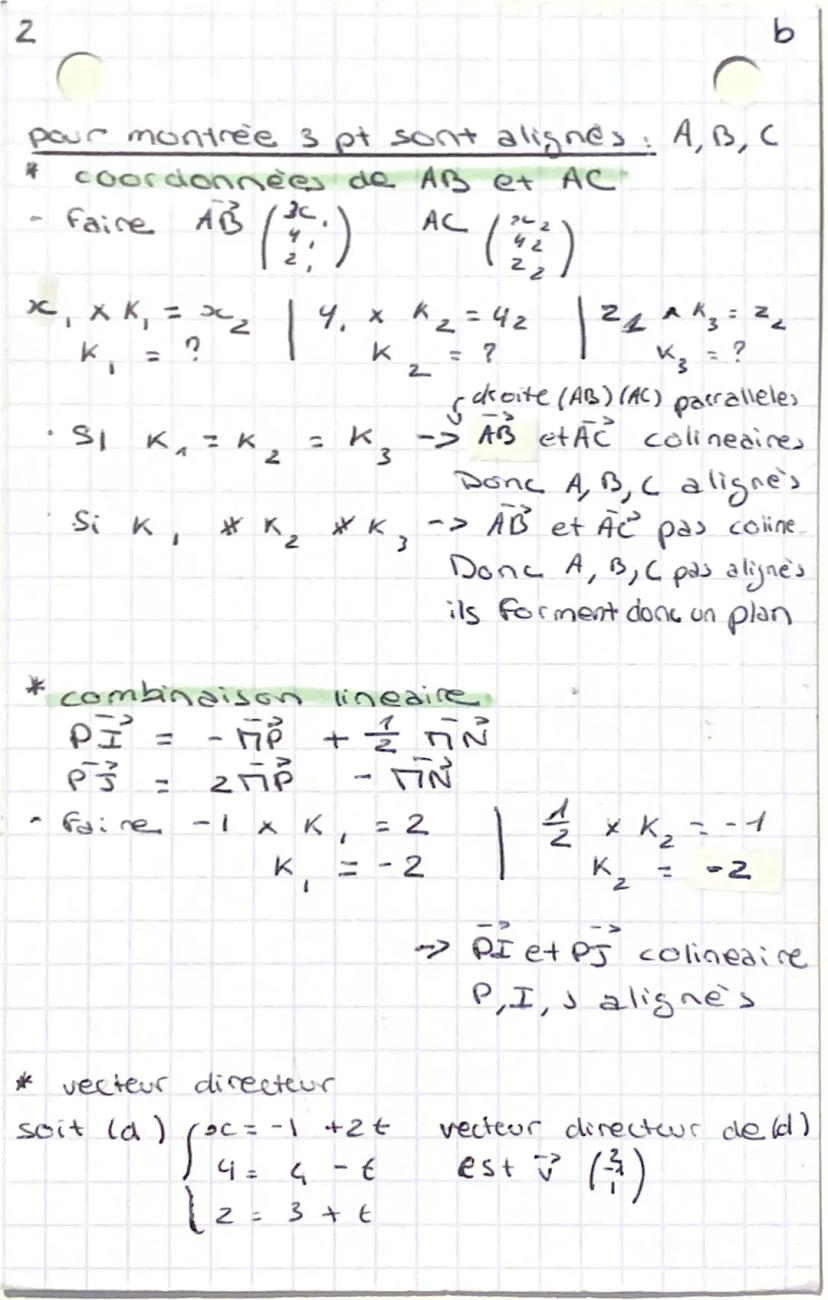 2 b
pour montrée 3 pt sont alignés : A, B, C
* coordonnées de AB et AC
- Faire AB⃗ (x₁ y₁ z₁) AC (x₂ y₂ z₂)
x₁ × K₁ = x₂ | y₁ × K₂ = y₂ | z₁ × K₃ = z₂
K₁ = ? | K₂ = ? K₃ = ?
droite (AB) (AC) parralleles
· Si K₁ = K₂ = K₃ -> AB⃗ et AC⃗ colineaires
Donc A, B, C alignés
· Si K₁ ≠ K₂ ≠ K₃ -> AB⃗ et AC⃗ pas coline
Donc A, B, C pas alignés
ils forment donc un plan
* combinaison lineaire
PI⃗ = - MP⃗ + 1/2 MN⃗
PJ⃗ = 2MP⃗ - MN⃗
- Faire -1 × K₁ = 2 | 1/2 × K₂ = -1
K₁ = -2 | K₂ = -2
-> PI⃗ et PJ⃗ colineaire
P, I, J alignés
* vecteur directeur
soit (d) { x = -1 + 2t vecteur directeur de (d)
y = 4 - t est v⃗ (2 -1 1)
z = 3 + t